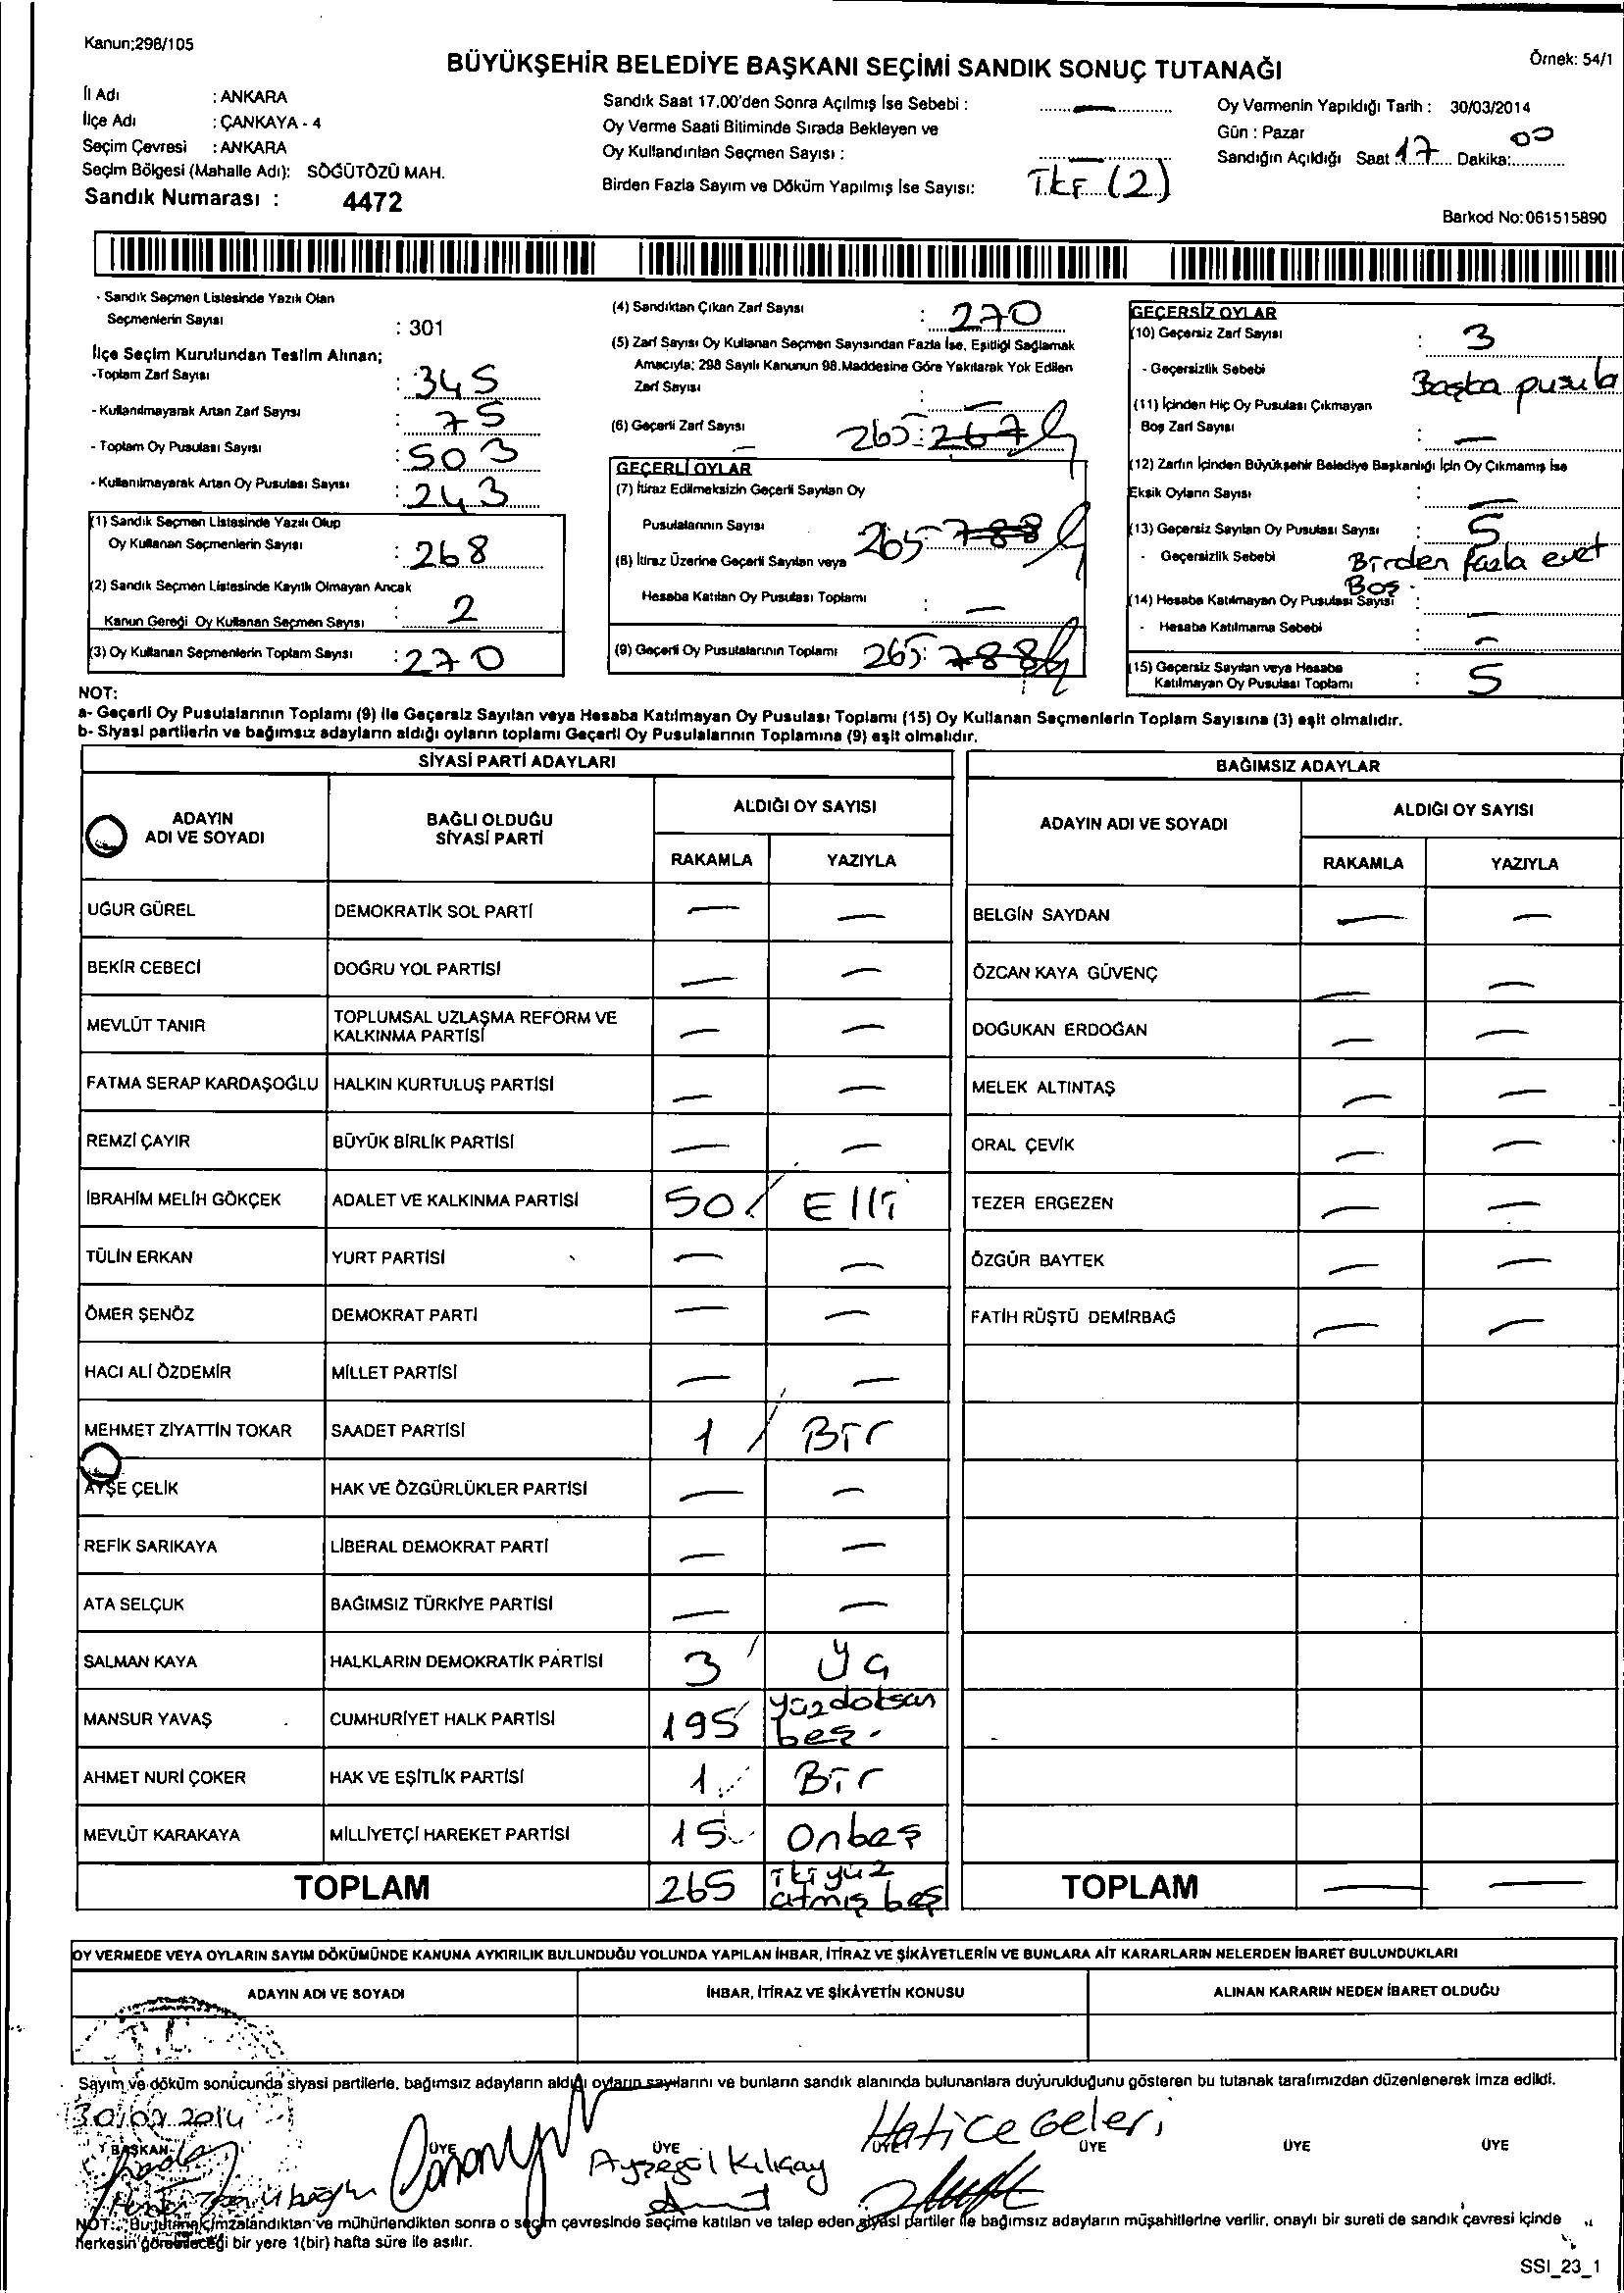 Kanun;298/105
BÜYÜKŞEHİR BELEDİYE BAŞKANI SEÇİMİ SANDIK SONUÇ TUTANAĞI
Örnek: 54/1
İl Adı : ANKARA
İlçe Adı : ÇANKAYA - 4
Seçim Çevresi : ANKARA
Seçim Bölgesi (Mahalle Adı): SÖĞÜTÖZÜ MAH.
Sandık Numarası : 4472
Sandık Saat 17.00'den Sonra Açılmış İse Sebebi : —
Oy Verme Saati Bitiminde Sırada Bekleyen ve
Oy Kullandırılan Seçmen Sayısı : —
Birden Fazla Sayım ve Döküm Yapılmış İse Sayısı: (2)
Oy Vermenin Yapıldığı Tarih : 30/03/2014
Gün : Pazar
Sandığın Açıldığı Saat 17 Dakika: 00
Barkod No: 061515890
- Sandık Seçmen Listesinde Yazılı Olan
Seçmenlerin Sayısı : 301
İlçe Seçim Kurulundan Teslim Alınan;
-Toplam Zarf Sayısı : 345
- Kullanılmayarak Artan Zarf Sayısı : 75
- Toplam Oy Pusulası Sayısı : 503
- Kullanılmayarak Artan Oy Pusulası Sayısı : 243
(1) Sandık Seçmen Listesinde Yazılı Olup
Oy Kullanan Seçmenlerin Sayısı : 268
(2) Sandık Seçmen Listesinde Kayıtlı Olmayan Ancak
Kanun Gereği Oy Kullanan Seçmen Sayısı : 2
(3) Oy Kullanan Seçmenlerin Toplam Sayısı : 270
(4) Sandıktan Çıkan Zarf Sayısı : 270
(5) Zarf Sayısı Oy Kullanan Seçmen Sayısından Fazla İse, Eşitliği Sağlamak
Amacıyla; 298 Sayılı Kanunun 98.Maddesine Göre Yakılarak Yok Edilen
Zarf Sayısı : —
(6) Geçerli Zarf Sayısı : 265 267
GEÇERLİ OYLAR
(7) İtiraz Edilmeksizin Geçerli Sayılan Oy
Pusulalarının Sayısı 265 788
(8) İtiraz Üzerine Geçerli Sayılan veya
Hesaba Katılan Oy Pusulası Toplamı : —
(9) Geçerli Oy Pusulalarının Toplamı 265: 788
GEÇERSİZ OYLAR
(10) Geçersiz Zarf Sayısı : 3
- Geçersizlik Sebebi Başka pusula
(11) İçinden Hiç Oy Pusulası Çıkmayan
Boş Zarf Sayısı : —
(12) Zarfın İçinden Büyükşehir Belediye Başkanlığı İçin Oy Çıkmamış İse
Eksik Oyların Sayısı : —
(13) Geçersiz Sayılan Oy Pusulası Sayısı : 5
- Geçersizlik Sebebi Birden fazla evet
Boş.
(14) Hesaba Katılmayan Oy Pusulası Sayısı : —
- Hesaba Katılmama Sebebi : —
(15) Geçersiz Sayılan veya Hesaba
Katılmayan Oy Pusulası Toplamı : 5
NOT:
a- Geçerli Oy Pusulalarının Toplamı (9) ile Geçersiz Sayılan veya Hesaba Katılmayan Oy Pusulası Toplamı (15) Oy Kullanan Seçmenlerin Toplam Sayısına (3) eşit olmalıdır.
b- Siyasi partilerin ve bağımsız adayların aldığı oyların toplamı Geçerli Oy Pusulalarının Toplamına (9) eşit olmalıdır.
SİYASİ PARTİ ADAYLARI
ADAYIN ADI VE SOYADI BAĞLI OLDUĞU SİYASİ PARTİ ALDIĞI OY SAYISI
RAKAMLA YAZIYLA
UĞUR GÜREL DEMOKRATİK SOL PARTİ — —
BEKİR CEBECİ DOĞRU YOL PARTİSİ — —
MEVLÜT TANIR TOPLUMSAL UZLAŞMA REFORM VE KALKINMA PARTİSİ — —
FATMA SERAP KARDAŞOĞLU HALKIN KURTULUŞ PARTİSİ — —
REMZİ ÇAYIR BÜYÜK BİRLİK PARTİSİ — —
İBRAHİM MELİH GÖKÇEK ADALET VE KALKINMA PARTİSİ 50 Elli
TÜLİN ERKAN YURT PARTİSİ — —
ÖMER ŞENÖZ DEMOKRAT PARTİ — —
HACI ALİ ÖZDEMİR MİLLET PARTİSİ — —
MEHMET ZİYATTİN TOKAR SAADET PARTİSİ 1 Bir
AYŞE ÇELİK HAK VE ÖZGÜRLÜKLER PARTİSİ — —
REFİK SARIKAYA LİBERAL DEMOKRAT PARTİ — —
ATA SELÇUK BAĞIMSIZ TÜRKİYE PARTİSİ — —
SALMAN KAYA HALKLARIN DEMOKRATİK PARTİSİ 3
MANSUR YAVAŞ CUMHURİYET HALK PARTİSİ 195 yüzdoksan beş.
AHMET NURİ ÇOKER HAK VE EŞİTLİK PARTİSİ 1 Bir
MEVLÜT KARAKAYA MİLLİYETÇİ HAREKET PARTİSİ 15 Onbeş
TOPLAM 265 ikiyüz atmış beş
BAĞIMSIZ ADAYLAR
ADAYIN ADI VE SOYADI ALDIĞI OY SAYISI
RAKAMLA YAZIYLA
BELGİN SAYDAN — —
ÖZCAN KAYA GÜVENÇ — —
DOĞUKAN ERDOĞAN — —
MELEK ALTINTAŞ — —
ORAL ÇEVİK — —
TEZER ERGEZEN — —
ÖZGÜR BAYTEK — —
FATİH RÜŞTÜ DEMİRBAĞ — —
TOPLAM — —
OY VERMEDE VEYA OYLARIN SAYIM DÖKÜMÜNDE KANUNA AYKIRILIK BULUNDUĞU YOLUNDA YAPILAN İHBAR, İTİRAZ VE ŞİKÂYETLERİN VE BUNLARA AİT KARARLARIN NELERDEN İBARET BULUNDUKLARI
ADAYIN ADI VE SOYADI İHBAR, İTİRAZ VE ŞİKÂYETİN KONUSU ALINAN KARARIN NEDEN İBARET OLDUĞU
Sayım ve döküm sonucunda siyasi partilerle, bağımsız adayların aldığı oyların sayılarını ve bunların sandık alanında bulunanlara duyurulduğunu gösteren bu tutanak tarafımızdan düzenlenerek imza edildi.
BAŞKAN ÜYE ÜYE ÜYE ÜYE ÜYE ÜYE
Ayşegül Kılıçay
Hatice Geleri
NOT: Bu tutanak imzalandıktan ve mühürlendikten sonra o seçim çevresinde seçime katılan ve talep eden siyasi partiler ile bağımsız adayların müşahitlerine verilir, onaylı bir sureti de sandık çevresi içinde
herkesin görebileceği bir yere 1(bir) hafta süre ile asılır.
SSI_23_1